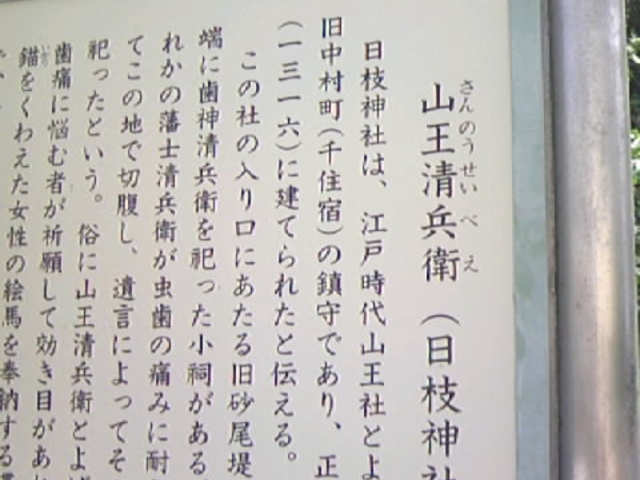 山王清兵衛（日枝神社
さんのうせいべえ
日枝神社は、江戸時代山王社とよ
旧中村町（千住宿）の鎮守であり、正
（一三一六）に建てられたと伝える。
この社の入り口にあたる旧砂尾堤
端に歯神清兵衛を祀った小祠がある
れかの藩士清兵衛が虫歯の痛みに耐
てこの地で切腹し、遺言によってそ
祀ったという。俗に山王清兵衛とよ
歯痛に悩む者が祈願して効き目があ
錨をくわえた女性の絵馬を奉納する
いかり